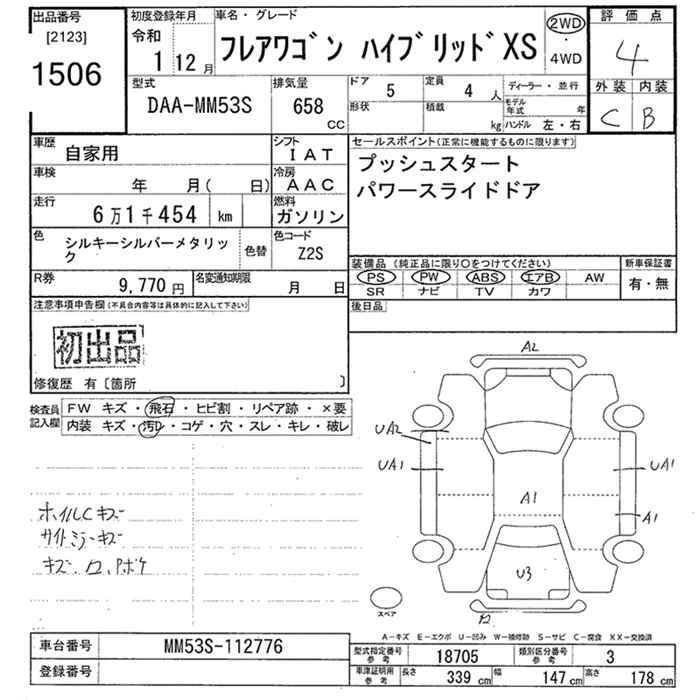 出品番号
[2123]
1506
初度登録年月
令和
1 12月
車名・グレード
フレアワゴン ハイブリッド XS
2WD
・
4WD
評価点
4
外装 内装
C B
型式
DAA-MM53S
排気量
658
CC
ドア 5
定員 4 人
形状
積載 kg
ディーラー・並行
モデル年式 年
ハンドル 左・右
車歴 自家用
シフト
IAT
車検 年 月( 日)
冷房
AAC
走行 6万1千454 km
燃料
ガソリン
色 シルキーシルバーメタリック
色替
色コード
Z2S
R券 9,770円
名変通知期限 月 日
セールスポイント(正常に機能するものに限ります)
プッシュスタート
パワースライドドア
装備品 (純正品に限り○をつけてください)
PS PW ABS エアB AW
SR ナビ TV カワ
新車保証書
有・無
後日品
注意事項申告欄(不具合内容等は具体的に記入して下さい)
初出品
修復歴 有〔箇所 〕
検査員
記入欄
FW キズ・飛石・ヒビ割・リペア跡・×要
内装 キズ・汚レ・コゲ・穴・スレ・キレ・破レ
ホイルCキズ
サイドミラーキズ
A2
UA2
UA1
UA1
A1
A1
U3
スペア
A-キズ E-エクボ U-凹み W-補修跡 S-サビ C-腐食 XX-交換済
車台番号 MM53S-112776
登録番号
型式指定番号
参考
18705
類別区分番号
参考
3
車庫証明用
参考
長さ 339 cm
幅 147 cm
高さ 178 cm